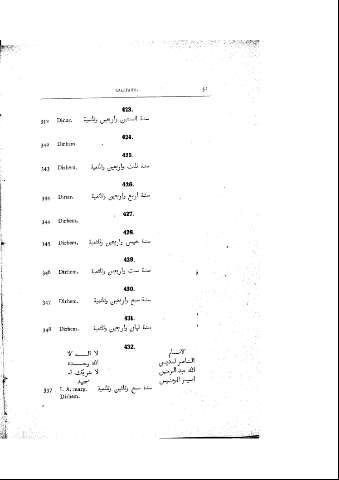 CALIFATE. 51
423.
342 Dinar. سنة اثنتين واربعين وثلثمية
424.
342 Dirhem.
425.
343 Dirhem. سنة ثلث واربعين وثلثمية
426.
344 Dinar. سنة اربع واربعين وثلثمية
427.
344 Dirhem.
428.
345 Dirhem. سنة خمس واربعين وثلثمية
429.
346 Dirhem. سنة ست واربعين وثلثمية
430.
347 Dirhem. سنة سبع واربعين وثلثمية
431.
348 Dirhem. سنة ثمان واربعين وثلثمية
432.
الامام لا اله الا
الناصر لدين الله وحده
الله عبد الرحمن لا شريك له
امير المومنين
337 I. A. سنة سبع وثلثين وثلثمية
Dirhem.